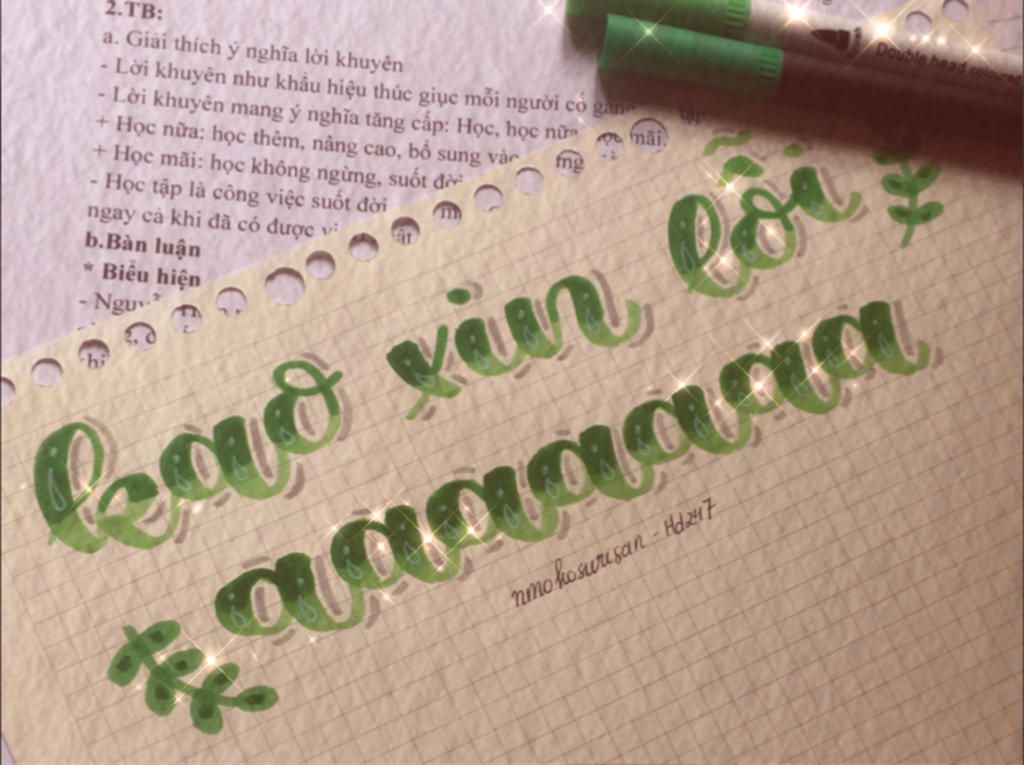 2.TB:
a. Giải thích ý nghĩa lời khuyên
- Lời khuyên như khẩu hiệu thúc giục mỗi người cố gắng tập
- Lời khuyên mang ý nghĩa tăng cấp: Học, học nữa học mãi.
+ Học nữa: học thêm, nâng cao, bổ sung vào
+ Học mãi: học không ngừng, suốt đời
- Học tập là công việc suốt đời
ngay cả khi đã có được
b.Bàn luận
* Biểu hiện
Double head coloured
kao xin lỗi
aaaaaaa
nmokosurusan - Hd247